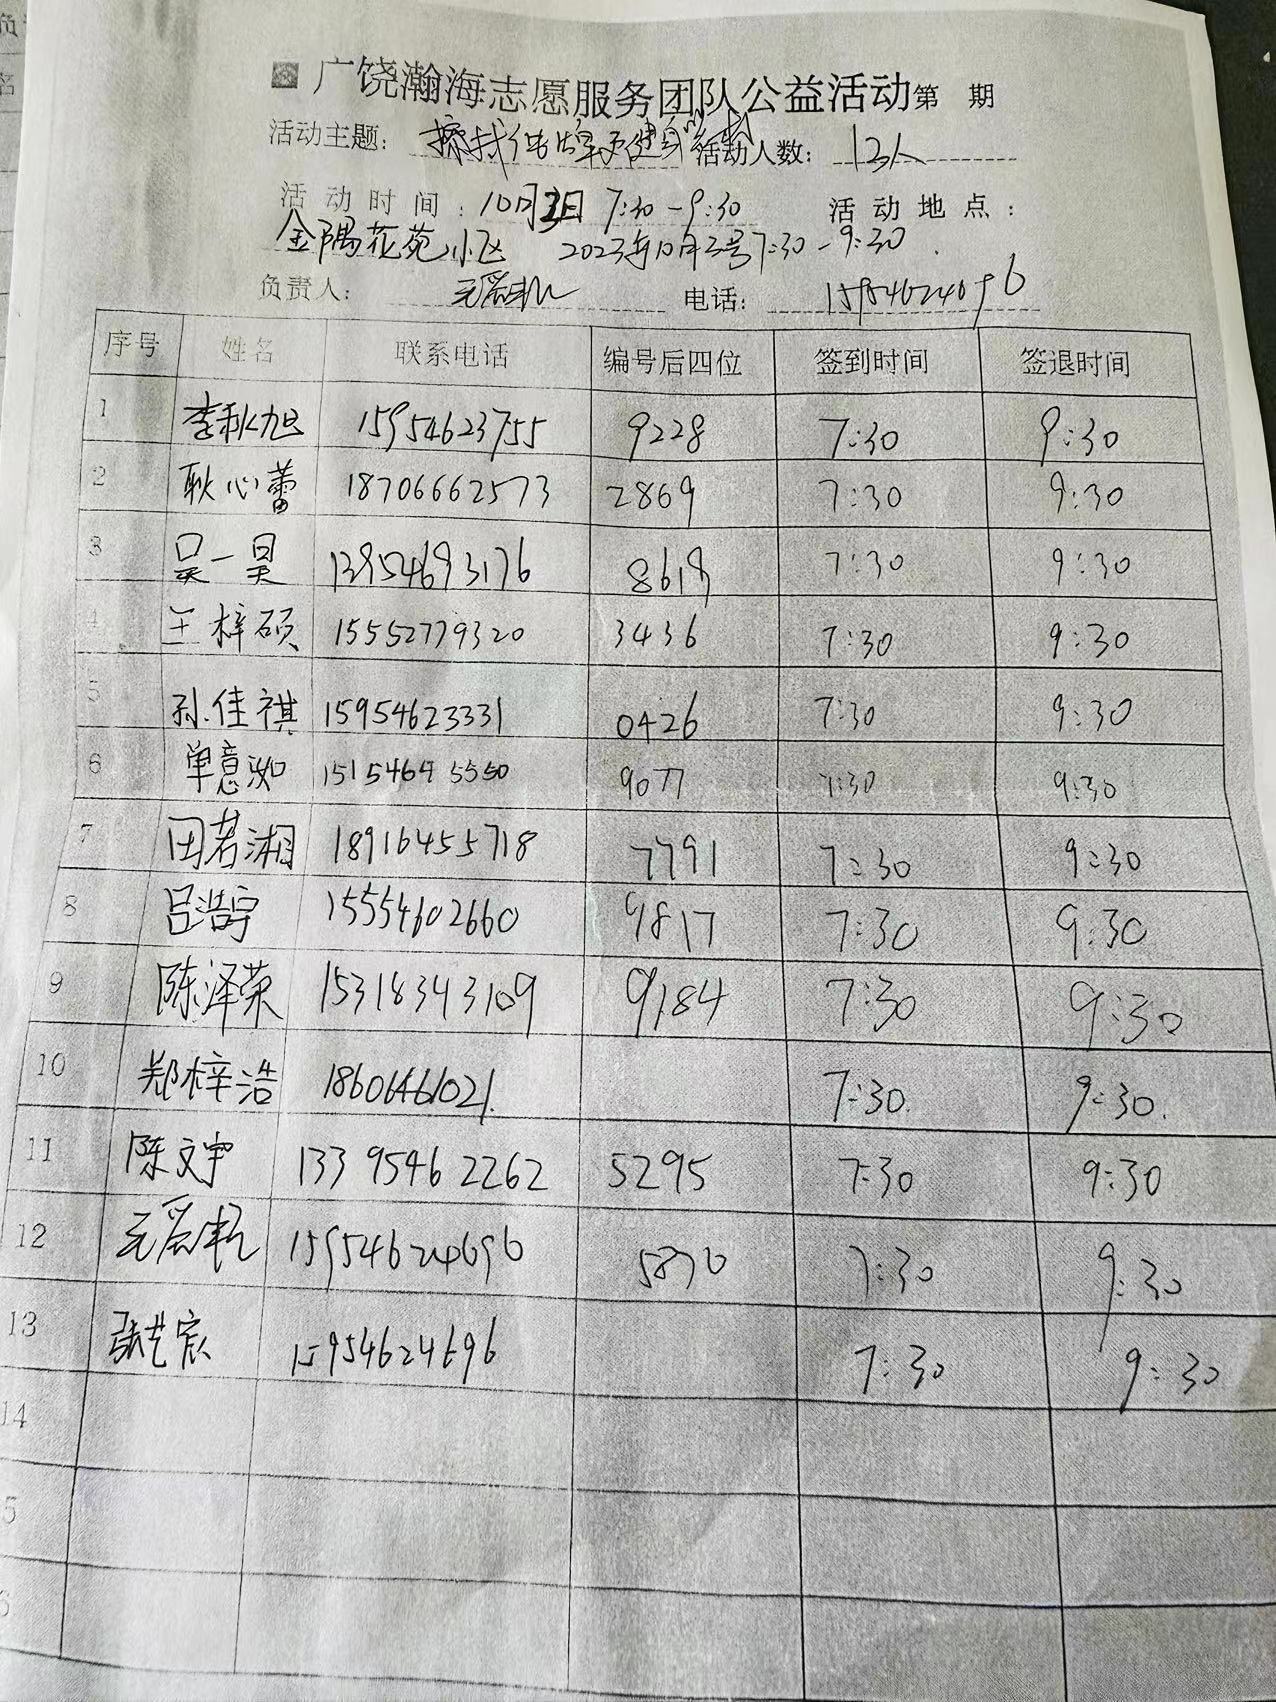 广饶瀚海志愿服务团队公益活动第 期
活动主题: 活动人数: 13人
活动时间: 10月3日 7:30-9:30 活动地点:
金隅花苑小区 2023年10月3号7:30-9:30
负责人: 电话: 15954624096
序号 姓名 联系电话 编号后四位 签到时间 签退时间
1 李秋旭 15954623755 9228 7:30 9:30
2 耿心蕾 18706662573 2869 7:30 9:30
3 吴一昊 13954693176 8619 7:30 9:30
4 王梓硕 15552779320 3436 7:30 9:30
5 孙佳祺 15954623331 0426 7:30 9:30
6 单意洳 9077 7:30 9:30
7 田若湘 18916455718 7791 7:30 9:30
8 吕浩宇 15554602660 9817 7:30 9:30
9 陈泽荣 15318343109 9184 7:30 9:30
10 郑梓浩 18606461021 7:30 9:30
11 陈文宇 13395462262 5295 7:30 9:30
12 5876 7:30 9:30
13 张艺宸 15954624696 7:30 9:30
14
5